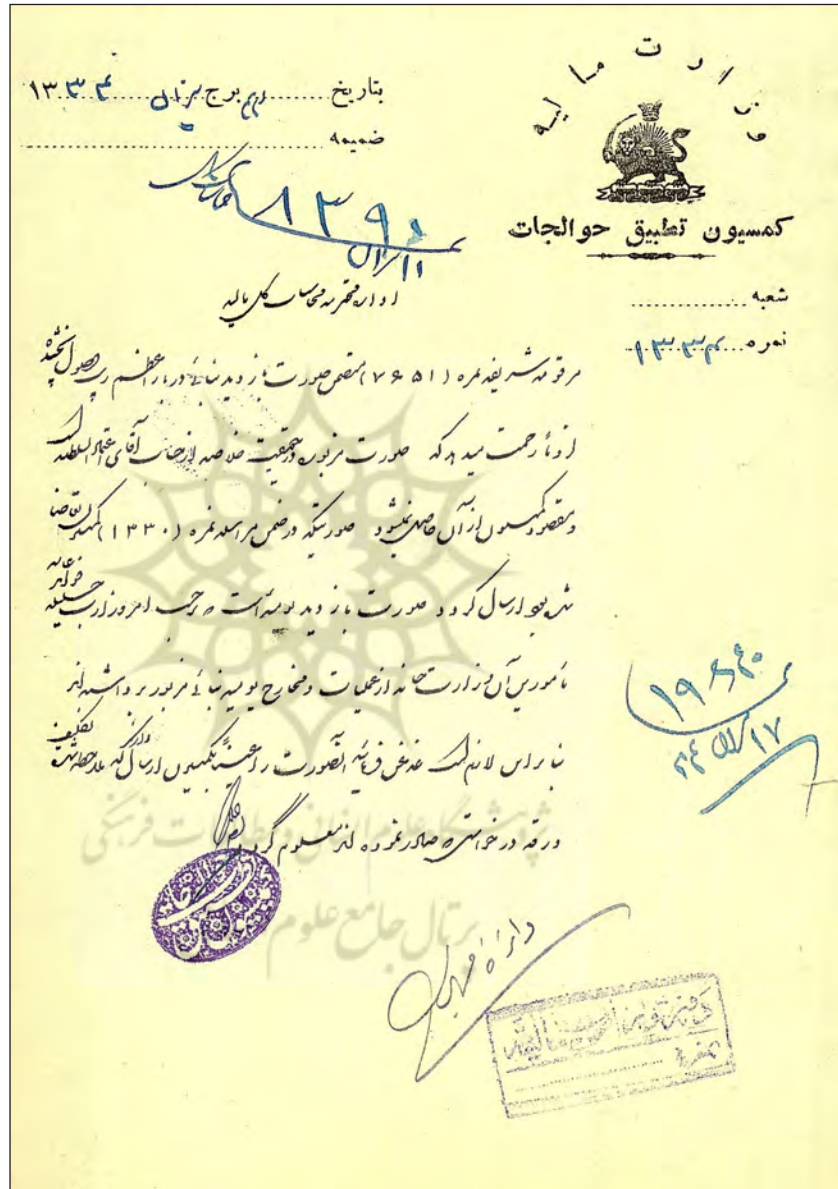 وزارت مالیه
کمسیون تطبیق حوالجات
شعبه
نمره ۱۳۳۴
بتاریخ برج میزان ۱۳۳۴
ضمیمه
۸۳۹۵
۱۱ میزان
اداره محترمه محاسبات کل مالیه
مرقومه شریفه نمره (۷۶۵۱) متضمن صورت بازدید بنائی دربار اعظم زیب وصول بخشید
زحمت میدهد که صورت مزبوره در حقیقت خلاصه از جناب آقای السلطنه
و مقصود کمسیون از آن حاصل نمیشود صورتیکه در ضمن مراسله نمره (۱۳۳۰) کمسیون تقاضا
شده بود ارسال گردد صورت بازدید یومیه است که بر حسب امر وزارت جلیله
مامورین آن وزارت خانه از عملیات و مخارج یومیه بنائی مزبور برداشته‌اند
بنابراین لازم است قدغن فرمائید آنصورت را عیناً بکمسیون ارسال دارند که ملاحظه شده تکلیف
ورقه درخواستی که صادر نموده‌اند معلوم گردد
۱۹۶۴۰
۱۷ میزان ۳۴
دایره
پژوهشگاه علوم انسانی و مطالعات فرهنگی
پرتال جامع علوم
نمره